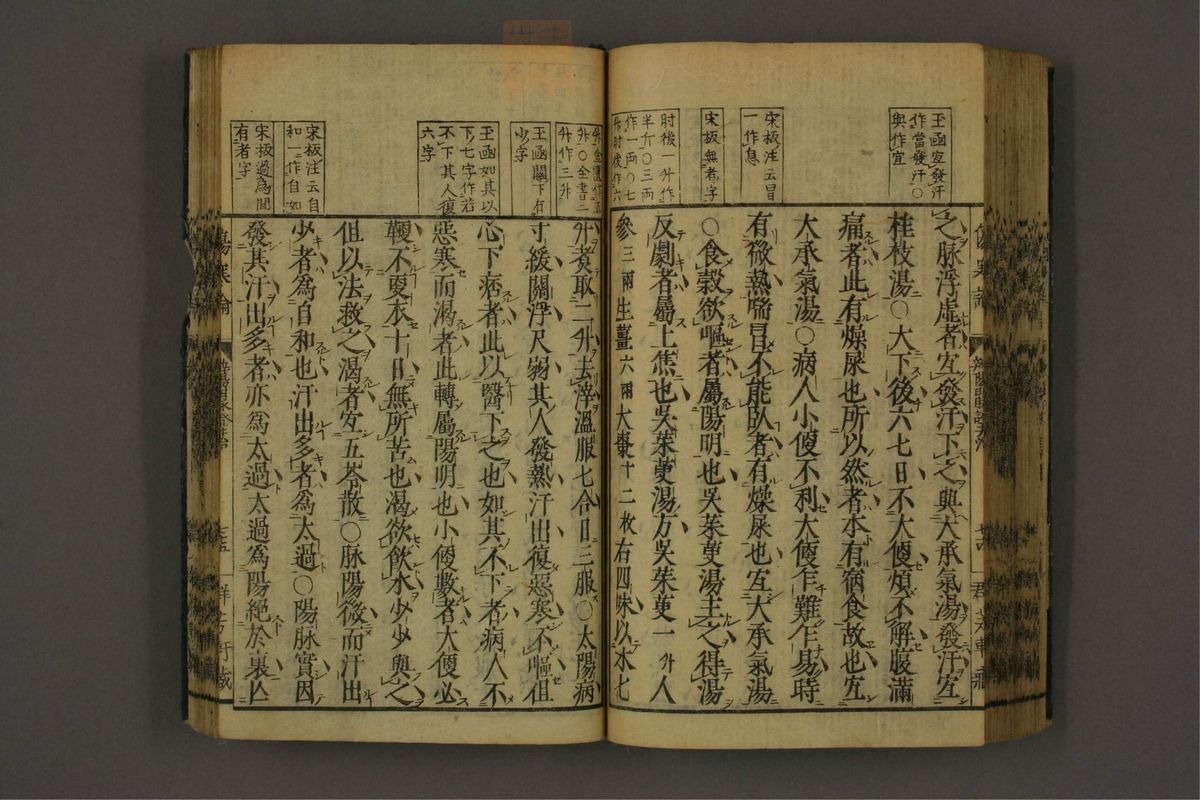 玉函宜發汗
作當發汗○
與作宜
宋板注云冒
一作息
宋板無者字
肘後一升作
半斤○三兩
作一兩○七
升肘後作六
之脉浮虛者宜發汗下之與大承氣湯發汗宜
桂枝湯○大下後六七日不大便煩不解腹滿
痛者此有燥屎也所以然者本有宿食故也宜
大承氣湯○病人小便不利大便乍難乍易時
有微熱喘冒不能臥者有燥屎也宜大承氣湯
○食穀欲嘔者屬陽明也吳茱萸湯主之得湯
反劇者屬上焦也吳茱萸湯方吳茱萸一升人
參三兩生薑六兩大棗十二枚右四味以水七
升金匱作五
升○全書二
升作三升
玉函關下有
少字
玉函如其以
下七字作若
不下其人復
六字
宋板注云自
和一作自如
宋板過爲間
有者字
升煑取二升去滓溫服七合日三服○太陽病
寸緩關浮尺弱其人發熱汗出復惡寒不嘔但
心下痞者此以醫下之也如其不下者病人不
惡寒而渴者此轉屬陽明也小便數者大便必
鞕不更衣十日無所苦也渴欲飮水少少與之
但以法救之渴者宜五苓散○脉陽微而汗出
少者爲自和也汗出多者爲太過○陽脉實因
發其汗出多者亦爲太過太過爲陽絕於裏亡
傷寒論